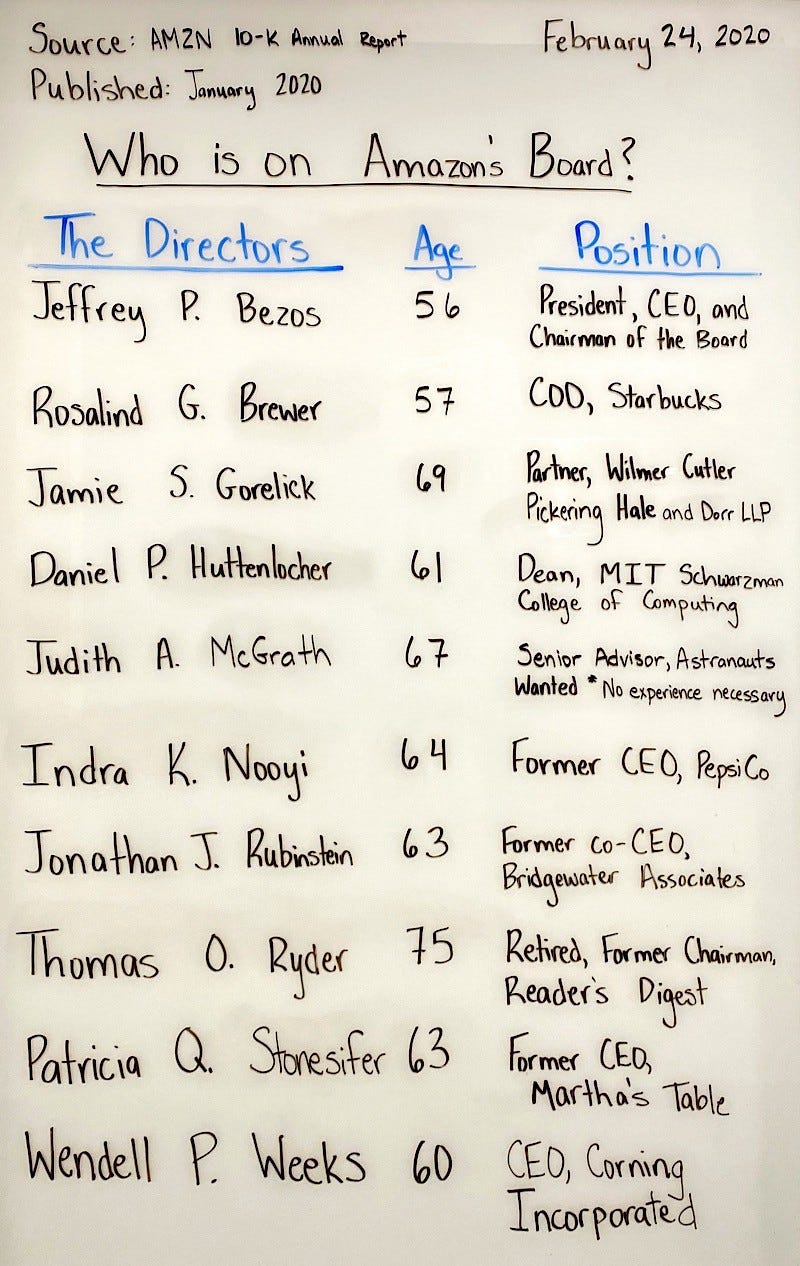 Source: AMZN 10-K Annual Report February 24, 2020
Published: January 2020
Who is on Amazon's Board?
The Directors Age Position
Jeffrey P. Bezos 56 President, CEO, and
Chairman of the Board
Rosalind G. Brewer 57 COO, Starbucks
Jamie S. Gorelick 69 Partner, Wilmer Cutler
Pickering Hale and Dorr LLP
Daniel P. Huttenlocher 61 Dean, MIT Schwarzman
College of Computing
Judith A. McGrath 67 Senior Advisor, Astranauts
Wanted * No experience necessary
Indra K. Nooyi 64 Former CEO, PepsiCo
Jonathan J. Rubinstein 63 Former co-CEO,
Bridgewater Associates
Thomas O. Ryder 75 Retired, Former Chairman,
Reader's Digest
Patricia Q. Stonesifer 63 Former CEO,
Martha's Table
Wendell P. Weeks 60 CEO, Corning
Incorporated